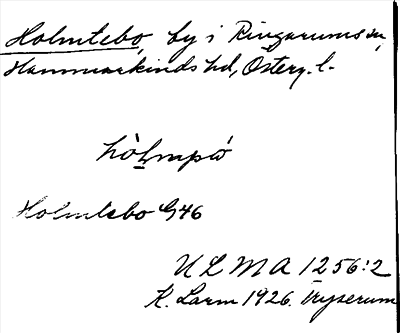 Holmtebo, by i Ringarums sn,
Hammarkinds hd, Österg. l.
Holmtebo G46
ULMA 1256:2
R. Larm 1926. Tryserum